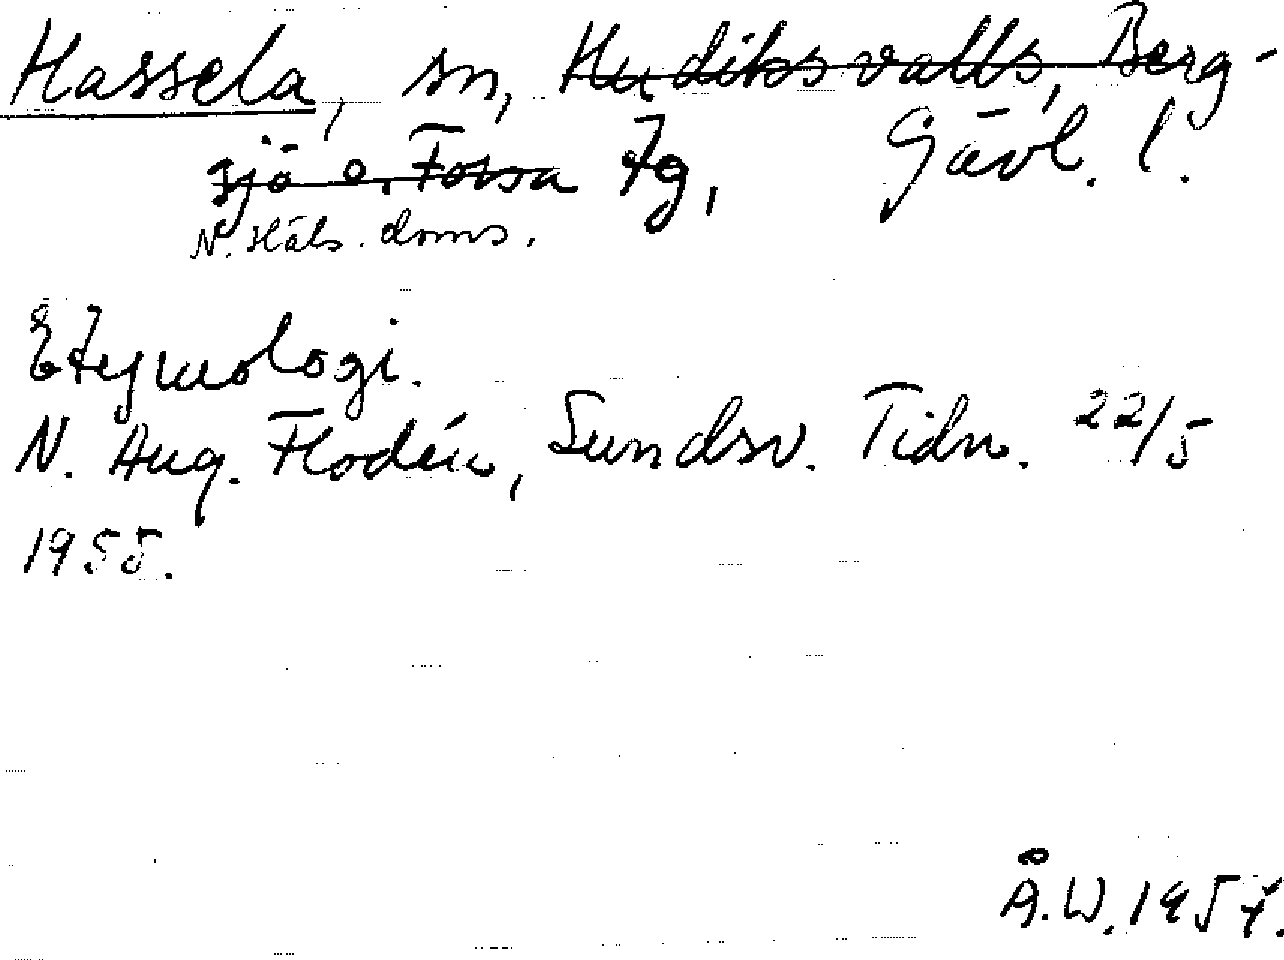 Hassela, sn, Hudiksvalls, Berg-
sjö o. Forsa tg, Gävl. l.
N. Häls. doms.
Etymologi.
N. Aug. Flodén, Sundsv. Tidn. 22/5
1955.
Å.W. 1957.